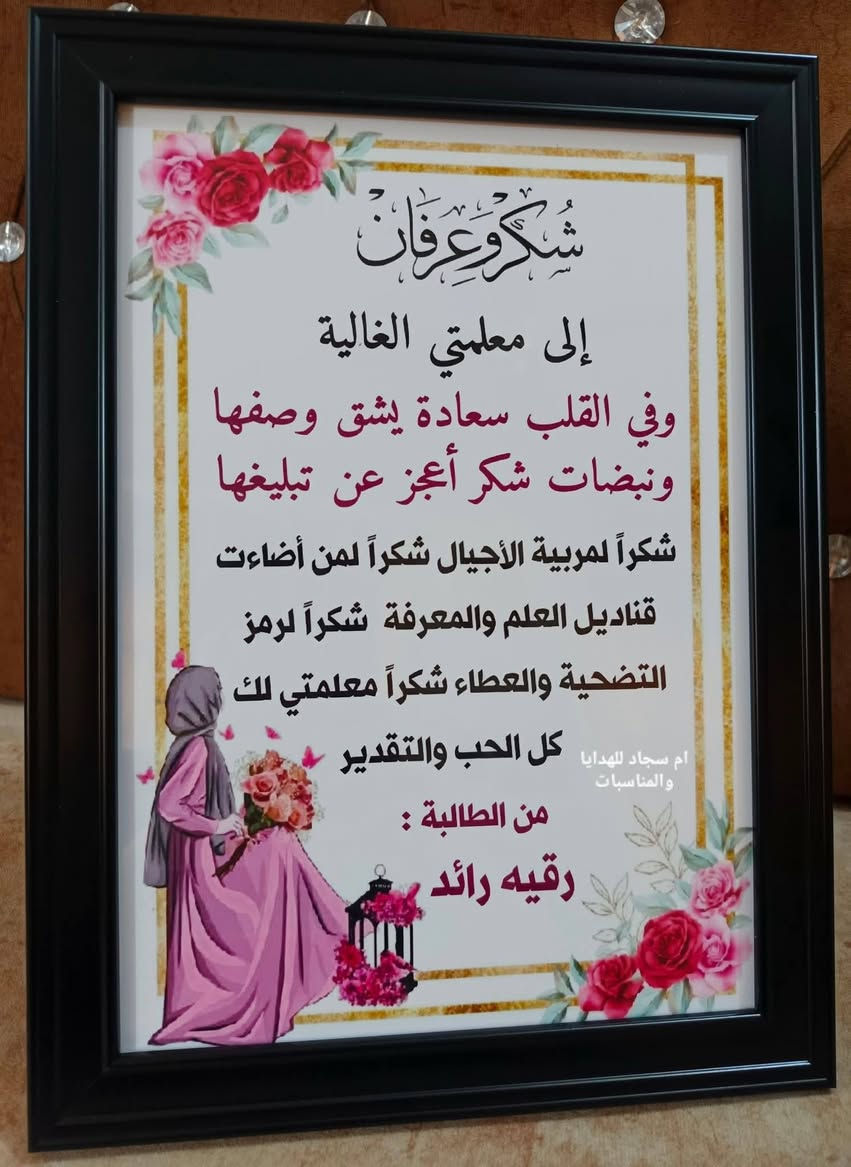 شُكْرٌ وَعِرفَان
إلى معلمتي الغالية
وفي القلب سعادة يشق وصفها
ونبضات شكر أعجز عن تبليغها
شكراً لمربية الأجيال شكراً لمن أضاءت
قناديل العلم والمعرفة شكراً لرمز
التضحية والعطاء شكراً معلمتي لك
كل الحب والتقدير
ام سجاد للهدايا
والمناسبات
من الطالبة :
رقيه رائد